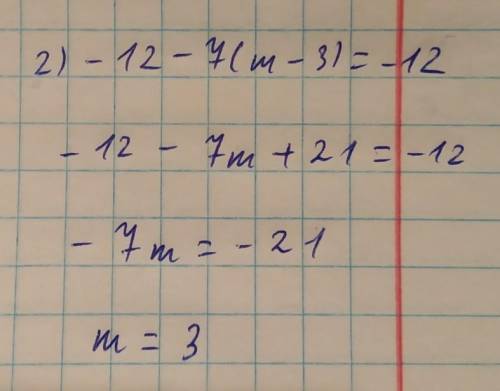 2) - 12 - 7(m - 3) = -12
- 12 - 7m + 21 = -12
- 7m = - 21
m = 3